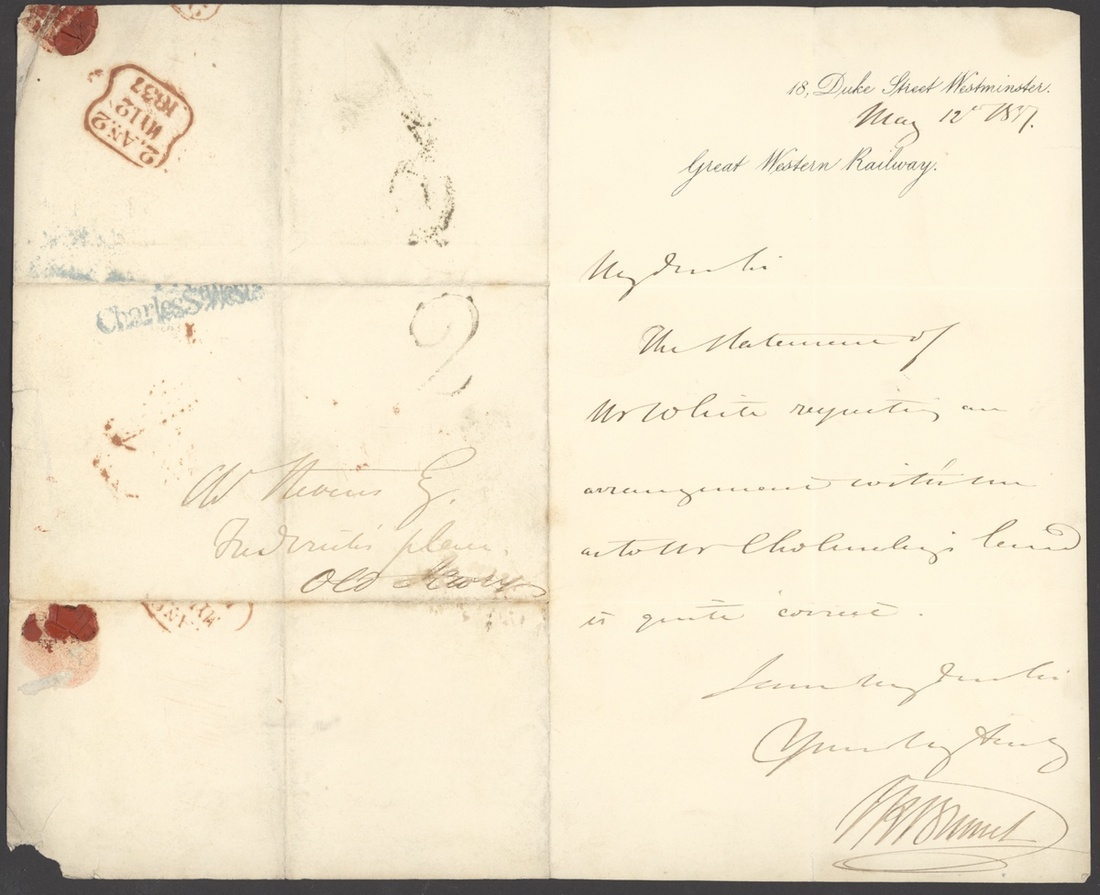 18, Duke Street Westminster.
May 12 1837.
Great Western Railway.
My dear Sir
The statement of
Mr White respecting an
arrangement with him
as to Mr Cholmeley's land
is quite correct.
I am My dear Sir
Yours very truly
I K Brunel
2. AN. 2
MY 12
1837
Charles St West
2
Stevens Esq.
Frederick's place
Old Jewry